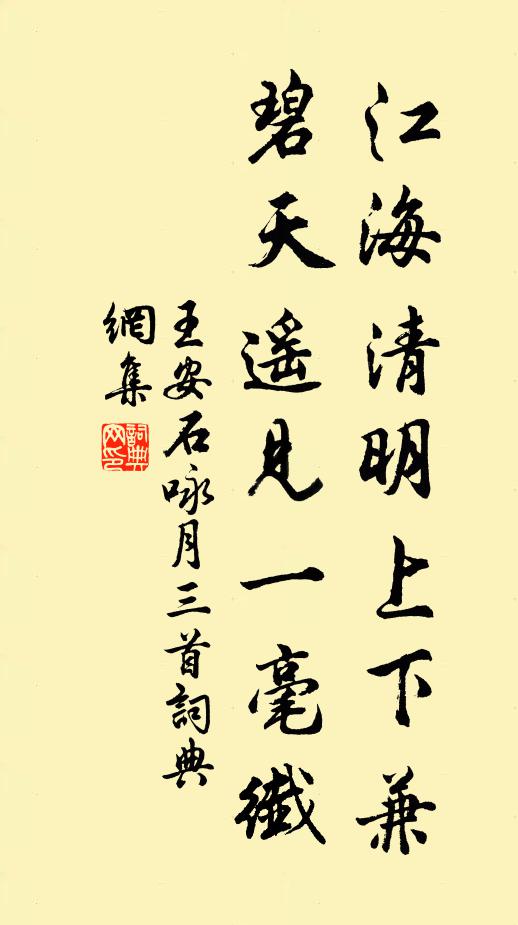 江海清明上下兼
碧天遥見一毫纖
王安石咏月三首詞典
網集
詞典
网印